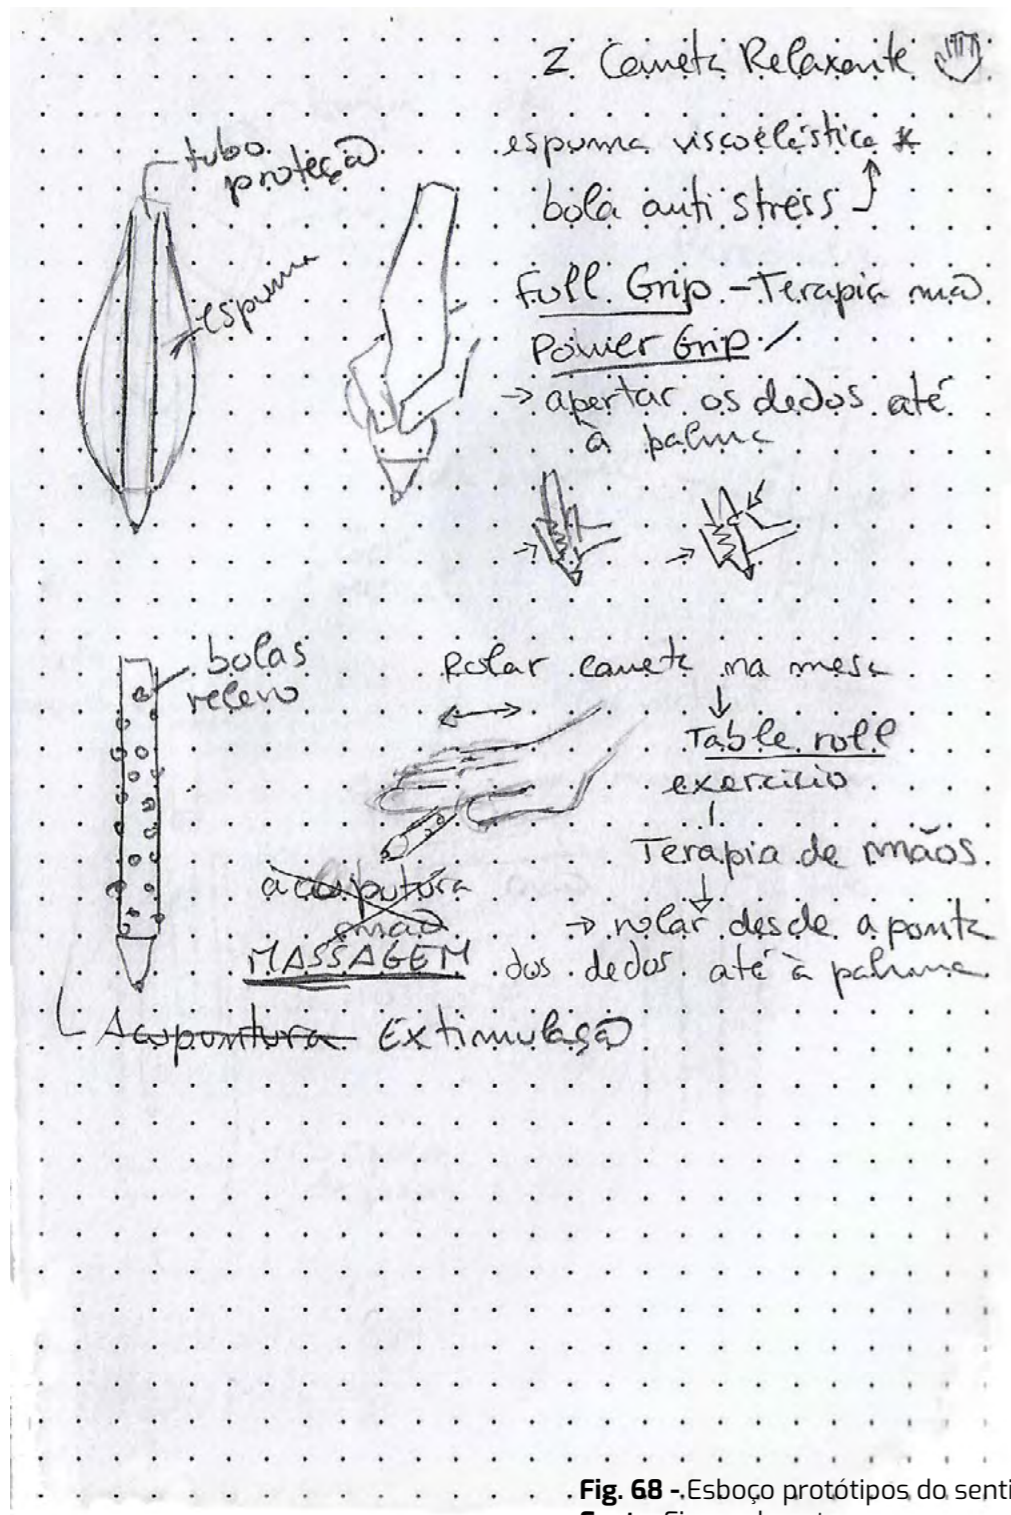 2 Caneta Relaxante
tubo
proteção
espuma viscoelástica *
bola anti stress
espuma
Full Grip - Terapia mão
Power Grip
→ apertar os dedos até
à palma
bolas
relevo
Rolar caneta na mesa
Table roll
exercicio
Terapia de mãos
→ rolar desde a ponta
dos dedos até à palma
mão
MASSAGEM
Acupuntura Extimulação
Fig. 68 - Esboço protótipos do senti